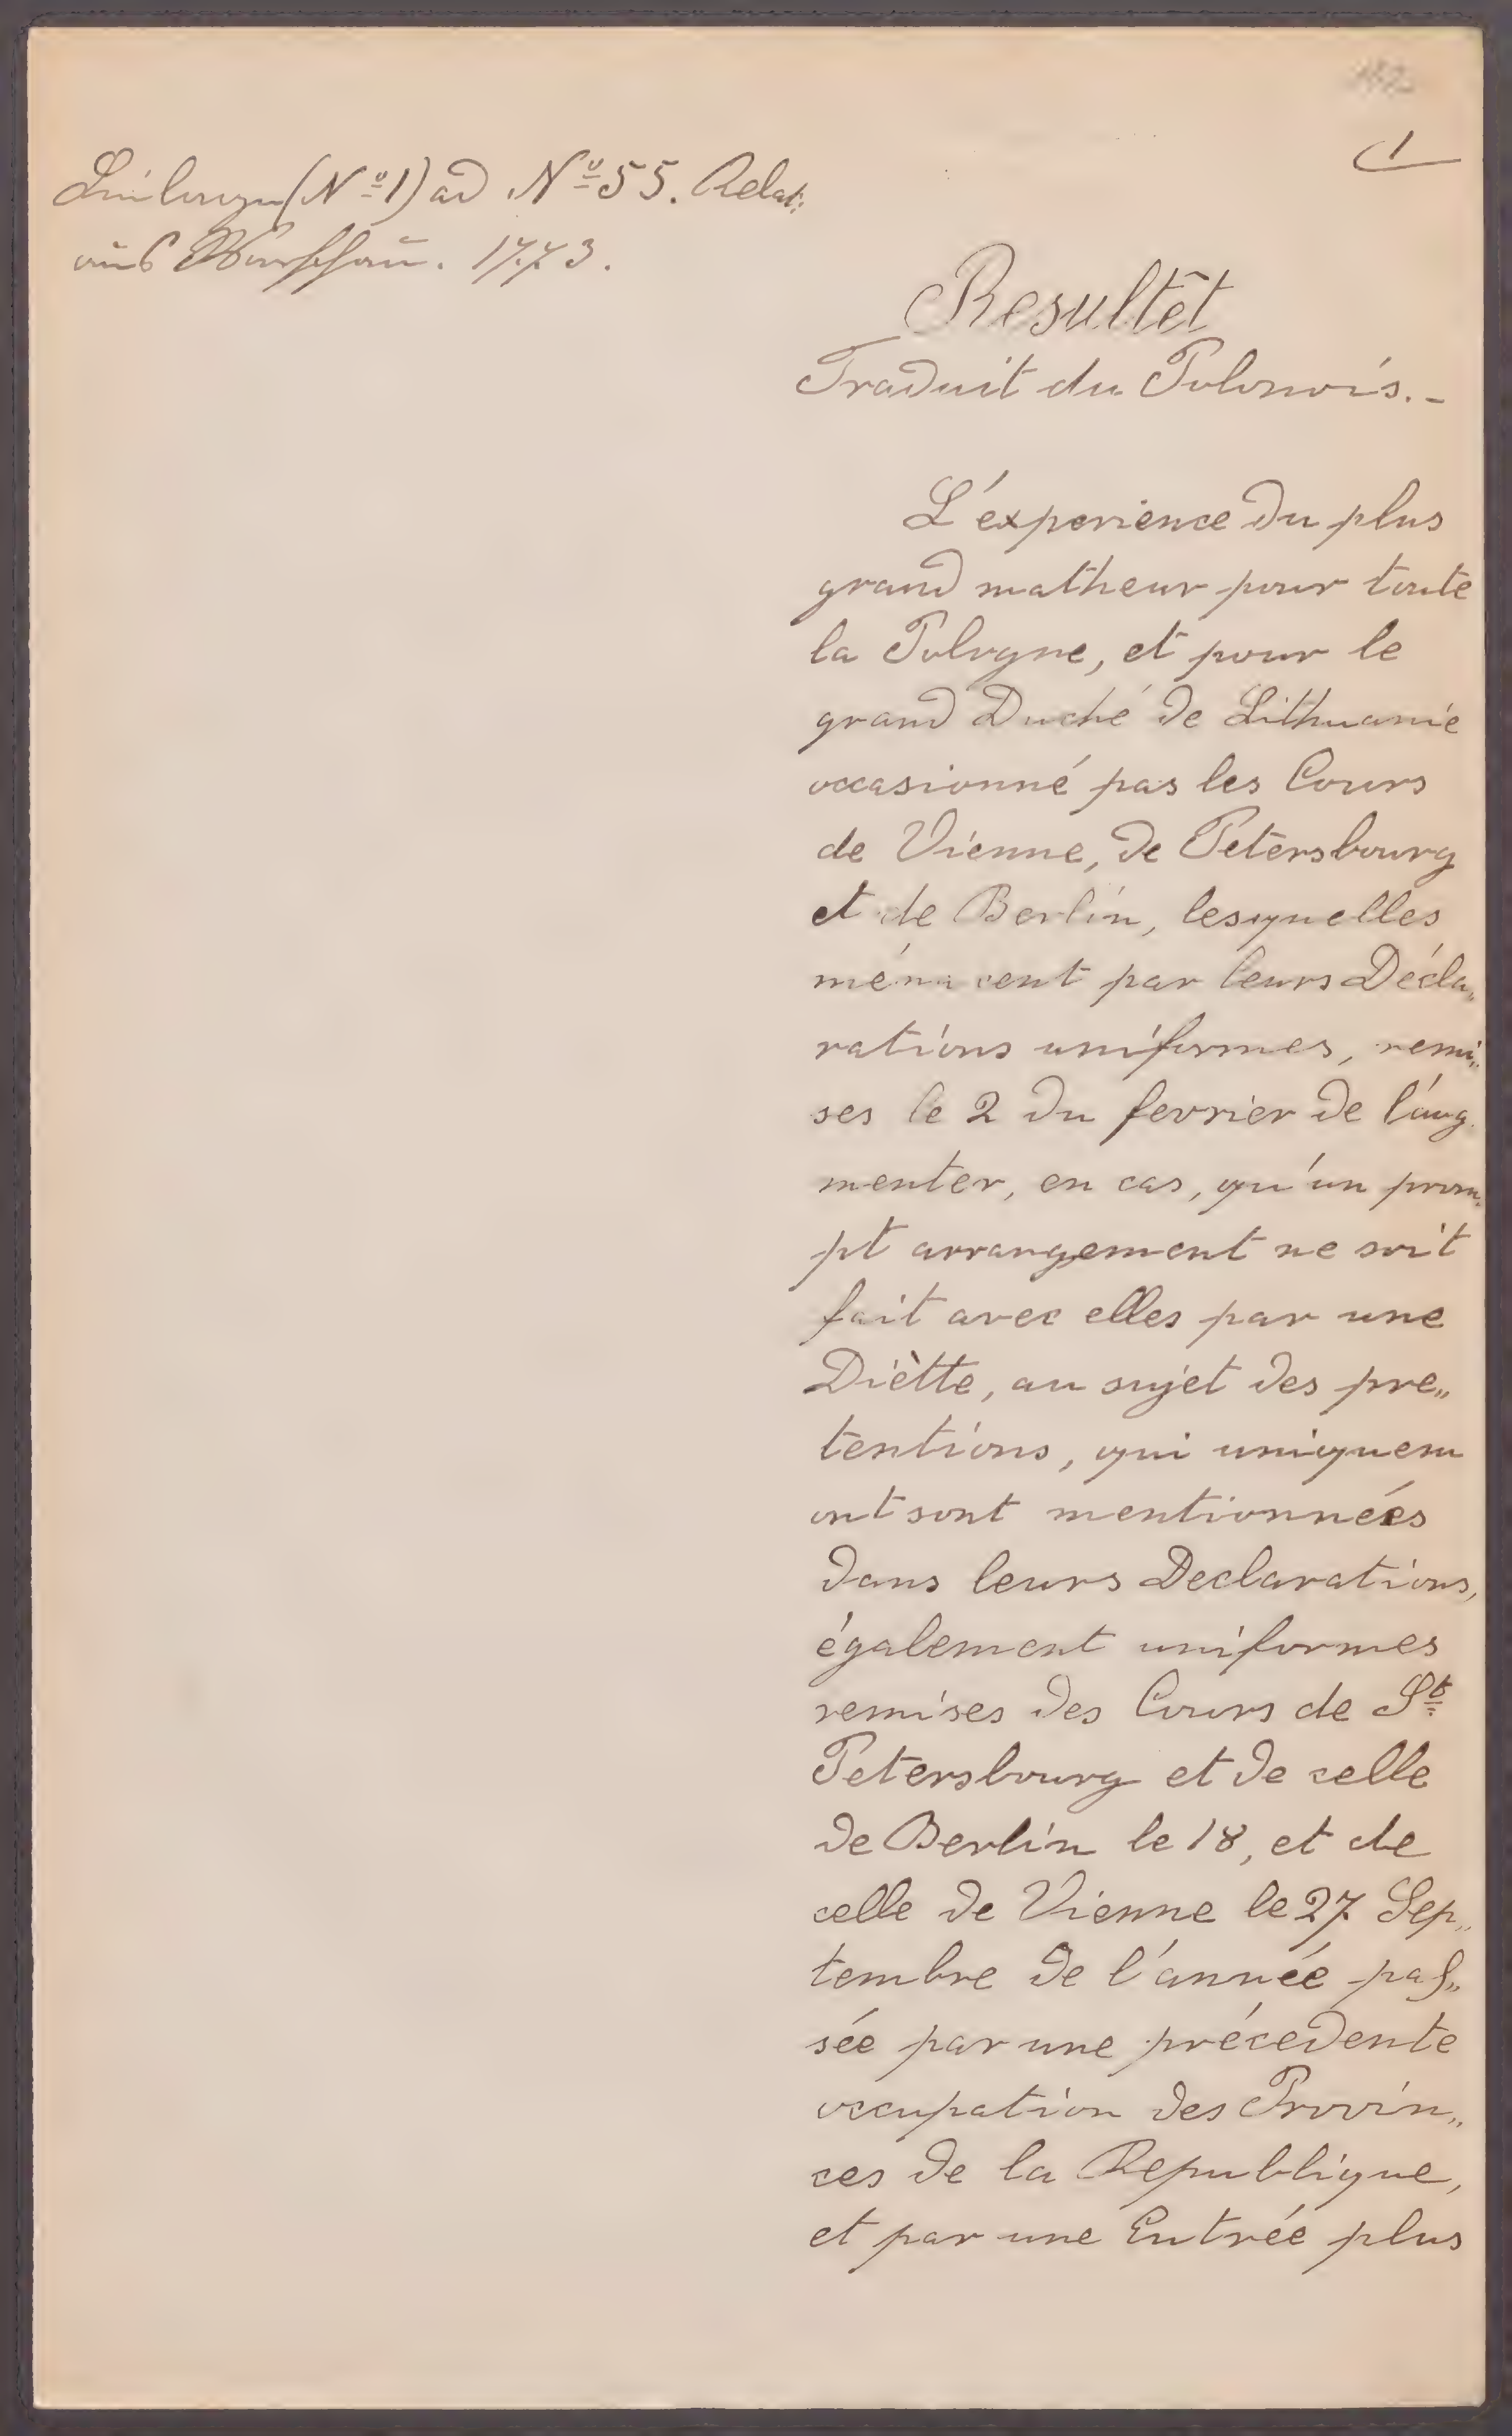 Beilage (Nº 1) ad Nº 55. Relat:
aus Warschau. 1773.
1
Resultét
Traduit du Polonois.-
L'éxperience du plus
grand malheur pour toute
la Pologne, et pour le
grand Duché de Lithuanie
occasionné pas les Cours
de Vienne, de Petersbourg
et de Berlin, lesquelles
ménacent par leurs Décla„
rations uniformes, remi„
ses le 2 du fevrier de l'aug„
menter, en cas, qu'un prom„
pt arrangement ne soit
fait avec elles par une
Diètte, au sujet des pre„
tentions, qui uniquem
ent sont mentionnées
dans leurs Declarations,
également uniformes
remises des Cours de St
Petersbourg et de celle
de Berlin le 18, et de
celle de Vienne le 27 Sep„
tembre de l'année pas„
sée par une précedente
occupation des Provin„
ces de la Republique,
et par une Entrée plus